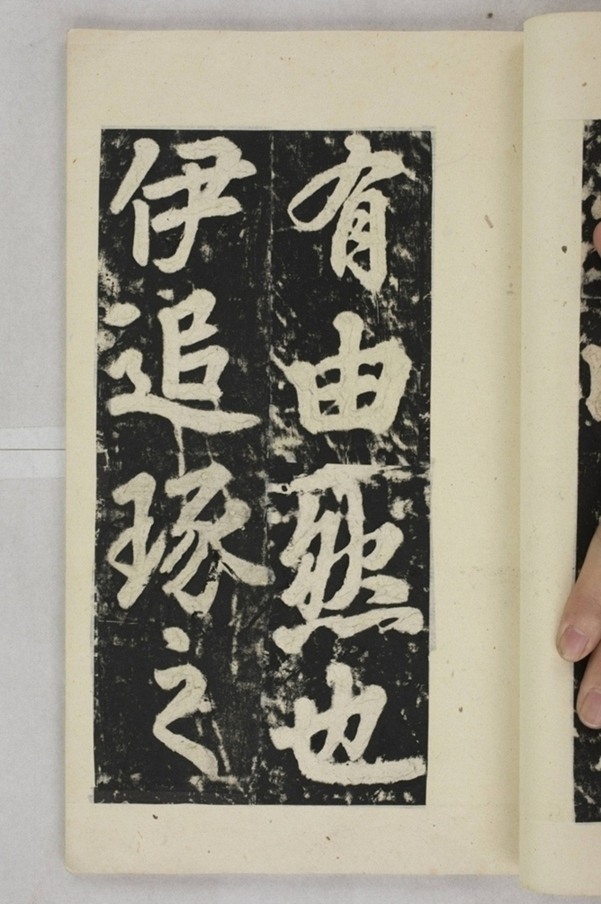 有由然也
伊追琢之